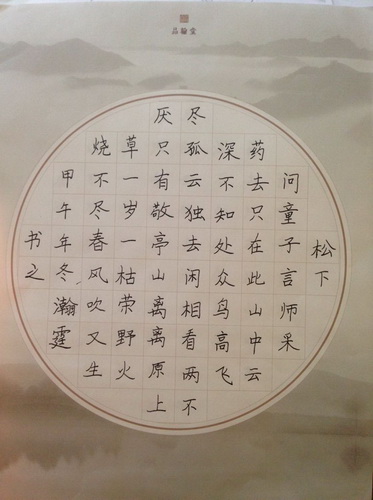 品翰堂
松下
问童子言师采
药去只在此山中云
深不知处众鸟高飞
尽孤云独去闲相看两不
厌只有敬亭山离离原上
草一岁一枯荣野火
烧不尽春风吹又生
甲午年冬瀚霆
书之